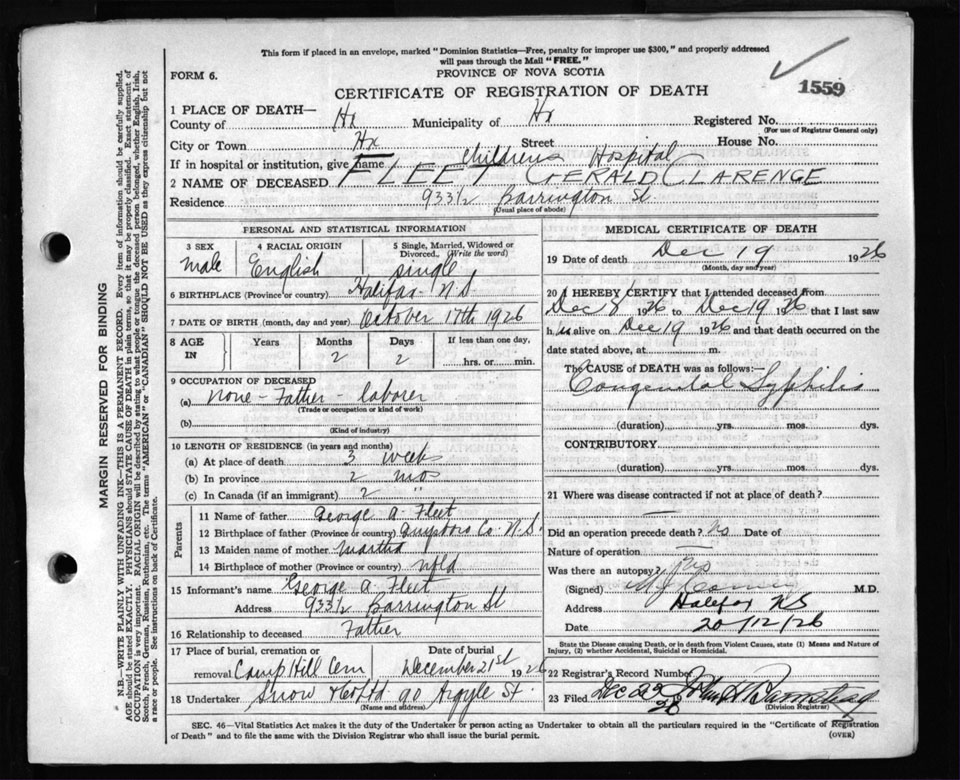 This form if placed in an envelope, marked "Dominion Statistics—Free, penalty for improper use $300," and properly addressed
will pass through the Mail "FREE."
FORM 6.
PROVINCE OF NOVA SCOTIA
1559
CERTIFICATE OF REGISTRATION OF DEATH
1 PLACE OF DEATH—
County of Hx Municipality of Hx Registered No.
(For use of Registrar General only)
City or Town Hx Street House No.
If in hospital or institution, give name Childrens Hospital
2 NAME OF DECEASED FLEET GERALD CLARENCE
Residence 933½ Barrington St
(Usual place of abode)
PERSONAL AND STATISTICAL INFORMATION
3 SEX 4 RACIAL ORIGIN 5 Single, Married, Widowed or Divorced, (Write the word)
male English single
6 BIRTHPLACE (Province or country) Halifax N S
7 DATE OF BIRTH (month, day and year) October 17th 1926
8 AGE IN Years Months Days If less than one day,
2 2 hrs. or min.
9 OCCUPATION OF DECEASED
(a) none - Father - laborer
(Trade or occupation or kind of work)
(b)
(Kind of industry)
10 LENGTH OF RESIDENCE (in years and months)
(a) At place of death 3 weeks
(b) In province 2 mos
(c) In Canada (if an immigrant) 2 "
Parents
11 Name of father George A. Fleet
12 Birthplace of father (Province or country) Guysboro Co. N.S.
13 Maiden name of mother Martha
14 Birthplace of mother nfld
15 Informant's name George A. Fleet
Address 933½ Barrington St
16 Relationship to deceased Father
17 Place of burial, cremation or Date of burial
removal Camp Hill Cem December 21st 1926
18 Undertaker Snow & Co Ltd 90 Argyle St.
(Name and address)
MEDICAL CERTIFICATE OF DEATH
19 Date of death Dec 19 1926
(Month, day and year)
20 I HEREBY CERTIFY that I attended deceased from
Dec 8 1926 to Dec 19 1926 that I last saw
h im alive on Dec 19 1926 and that death occurred on the
date stated above, at m.
The CAUSE of DEATH was as follows:—
Congenital Syphilis
(duration) yrs. mos. dys.
CONTRIBUTORY
(duration) yrs. mos. dys.
21 Where was disease contracted if not at place of death?
—
Did an operation precede death? No Date of
Nature of operation —
Was there an autopsy?
(Signed) M.D.
Address Halifax NS
Date 20/12/26
State the Disease causing Death, or in death from Violent Causes, state (1) Means and Nature of
Injury, (2) whether Accidental, Suicidal or Homicidal.
22 Registrar's Record Number
23 Filed Dec 22
(Division Registrar)
SEC. 46—Vital Statistics Act makes it the duty of the Undertaker or person acting as Undertaker to obtain all the particulars required in the "Certificate of Registration
of Death" and to file the same with the Division Registrar who shall issue the burial permit.
(OVER)
MARGIN RESERVED FOR BINDING
N.B.—WRITE PLAINLY WITH UNFADING INK—THIS IS A PERMANENT RECORD. Every item of information should be carefully supplied.
AGE should be stated EXACTLY. PHYSICIANS should STATE CAUSE OF DEATH in plain terms, so that it may be properly classified. Exact statement of
OCCUPATION is very important. RACIAL ORIGIN will be described by stating to what people or tongue the deceased person belonged, whether English, Irish,
Scotch, French, German, Russian, Ruthenian, etc. The terms "AMERICAN" or "CANADIAN" SHOULD NOT BE USED as they express citizenship but not
a race or people. See instructions on back of Certificate.